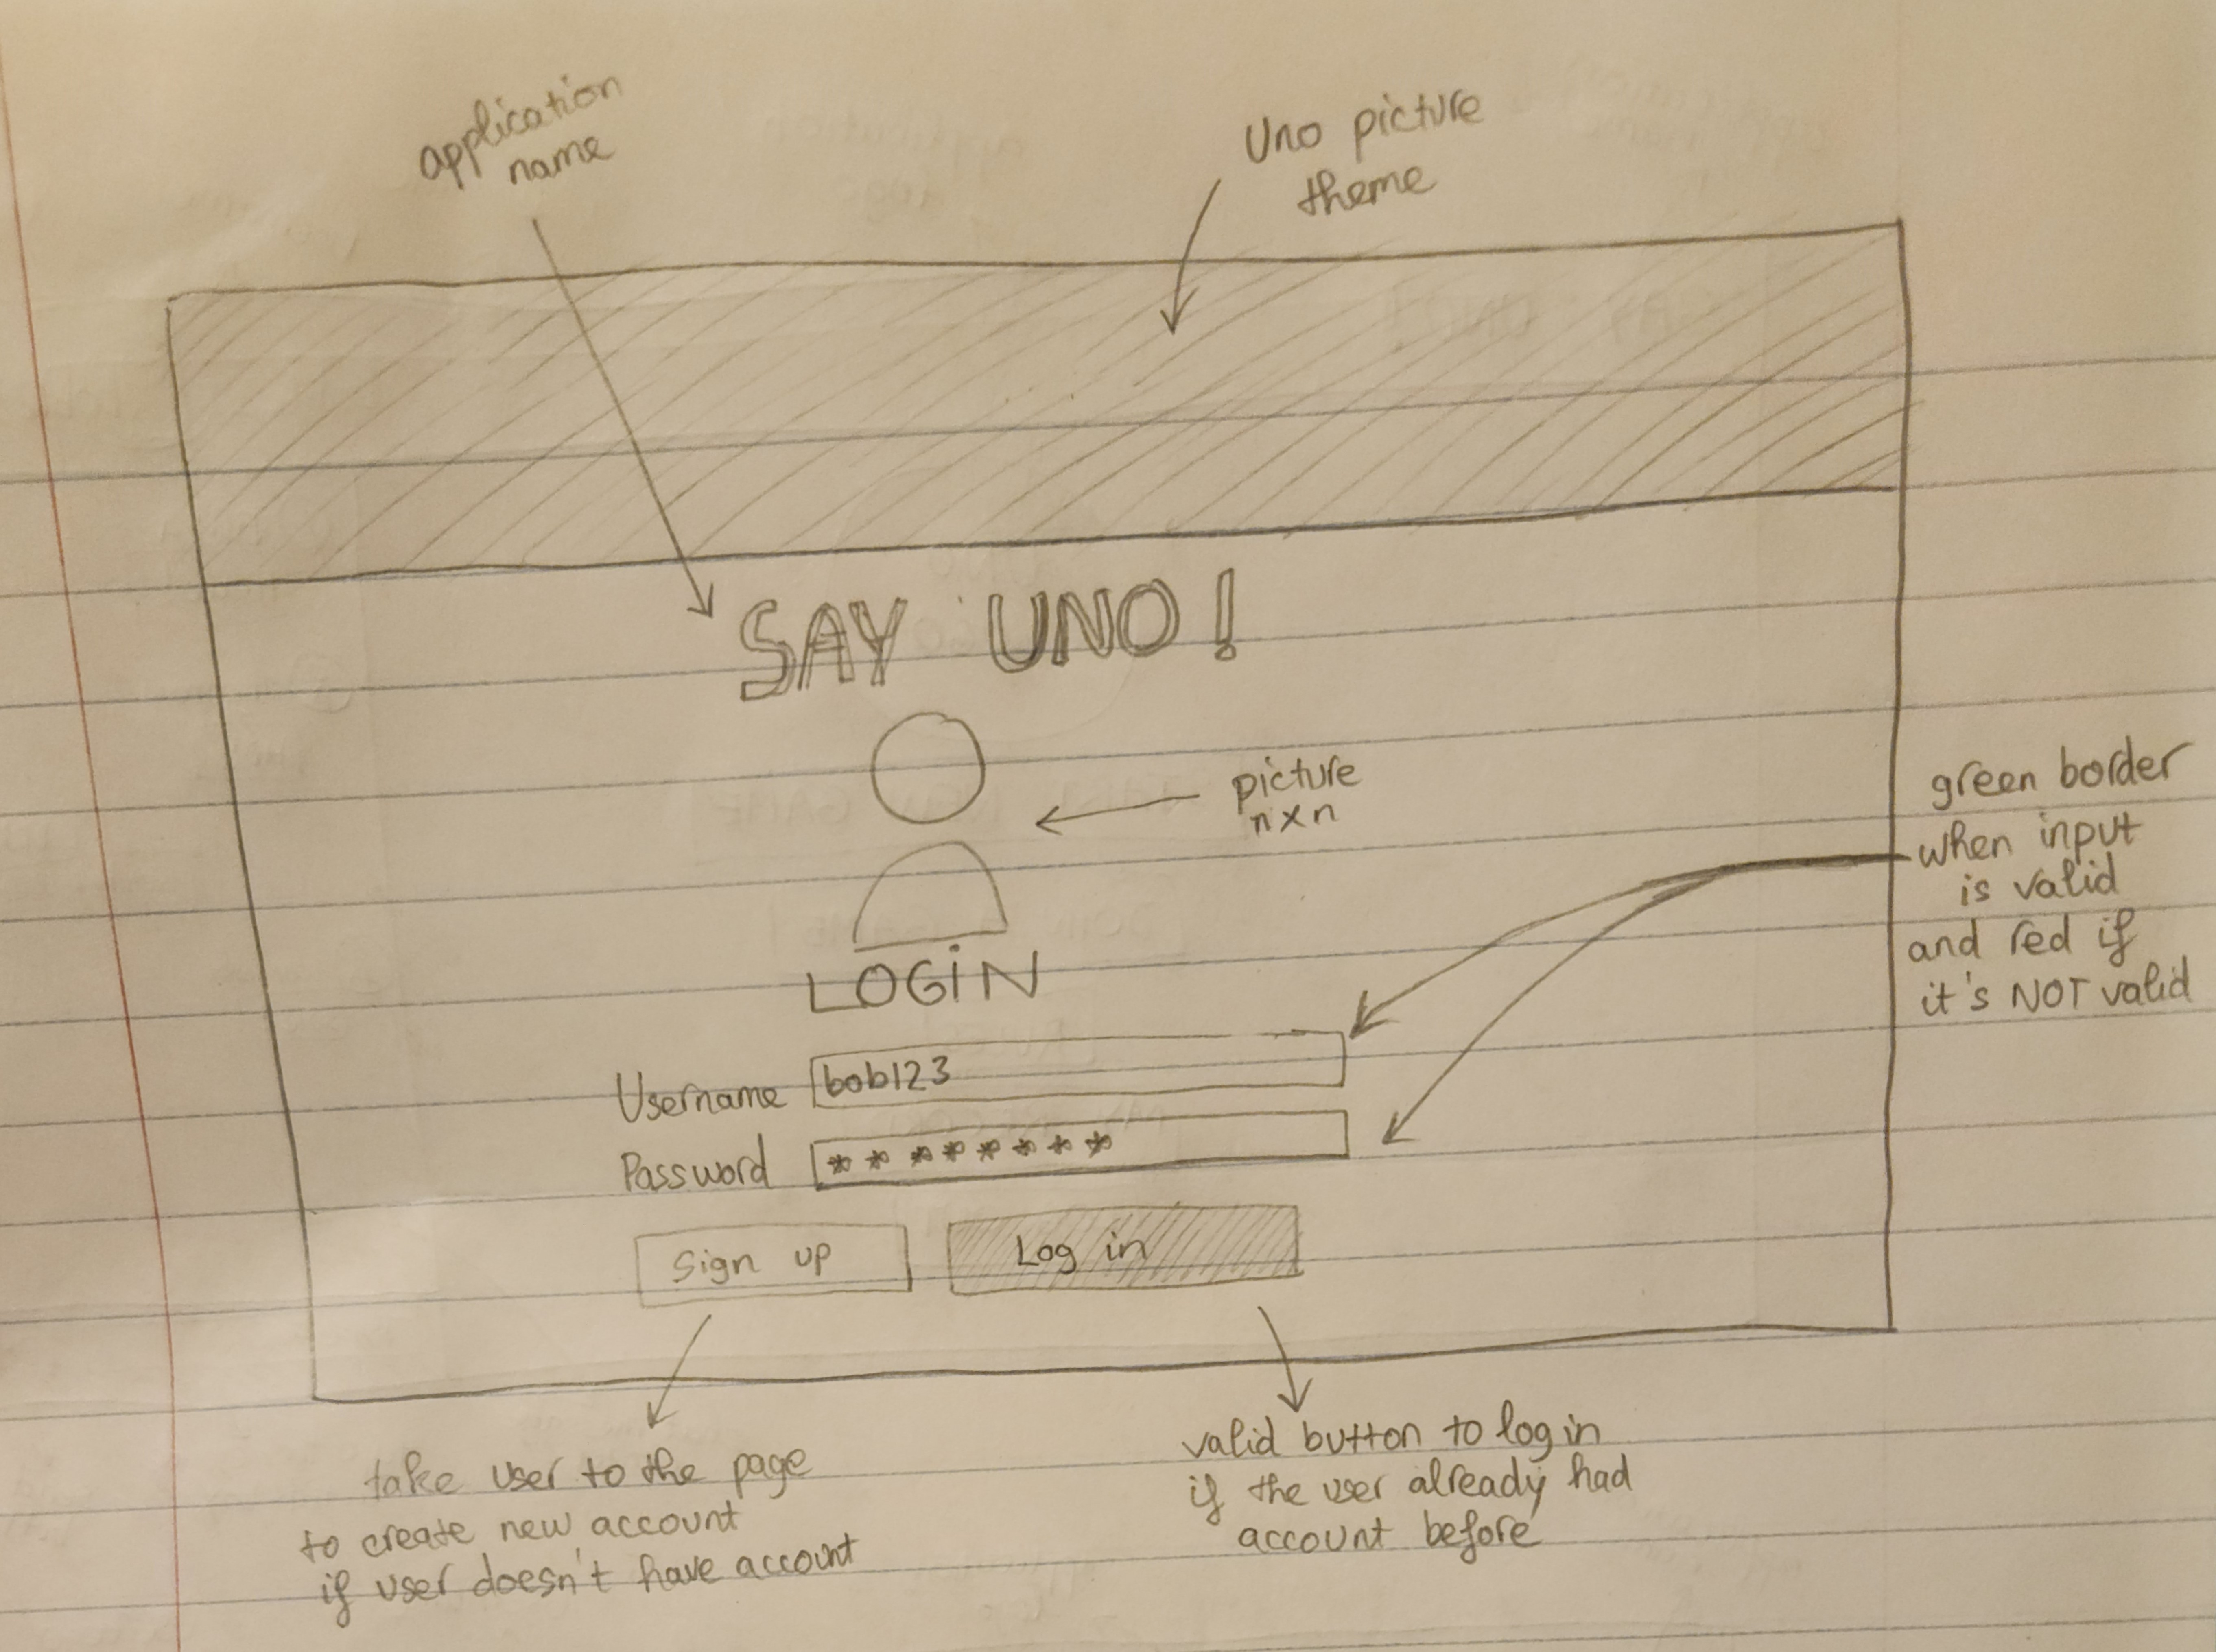 application
name
Uno picture
theme
SAY UNO!
picture
n x n
LOGIN
green border
when input
is valid
and red if
it's NOT valid
Username bob123
Password ********
Sign up Log in
take user to the page
to create new account
if user doesn't have account
valid button to log in
if the user already had
account before